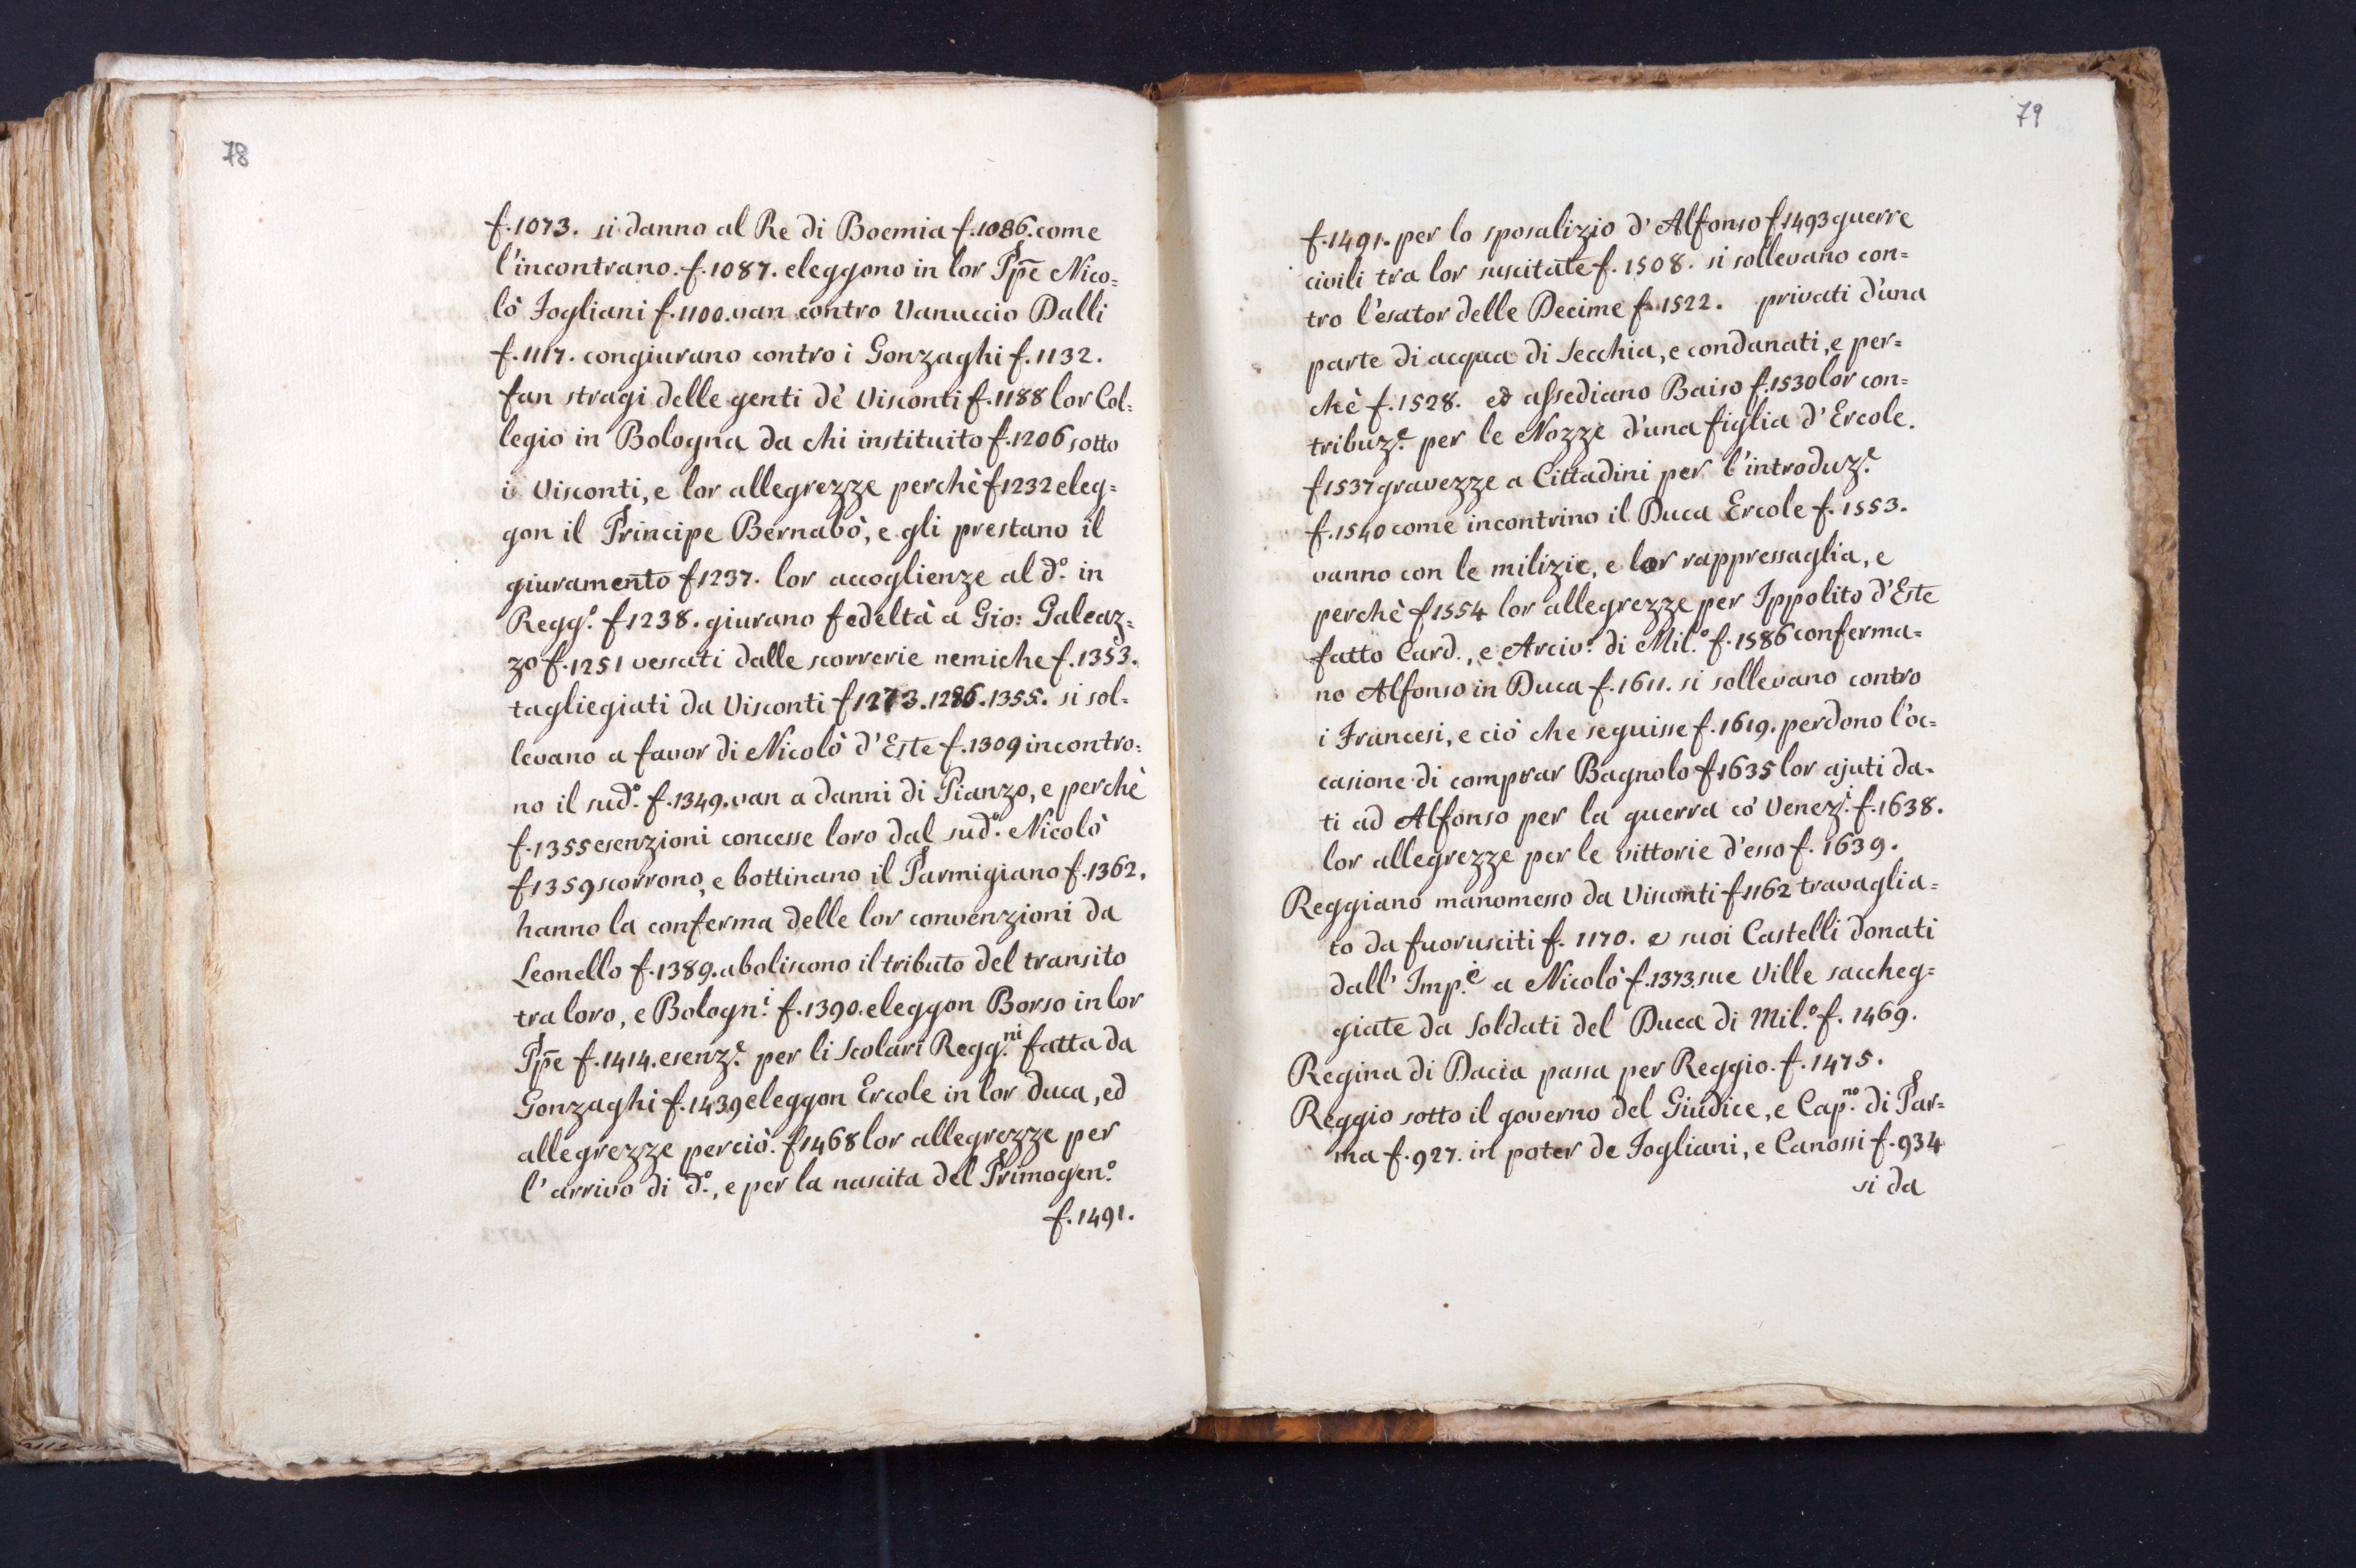 78
f. 1073. si danno al Re di Boemia f. 1086. come
l'incontrano. f. 1087. eleggono in lor Ppe Nico=
lò Fogliani f. 1100. van contro Vanuccio Dalli
f. 1117. congiurano contro i Gonzaghi f. 1132.
fan stragi delle genti de' Visconti f. 1188 lor Col=
legio in Bologna da chi instituito f. 1206 sotto
i Visconti, e lor allegrezze perchè f 1232 eleg=
gon il Principe Bernabò, e gli prestano il
giuramento f 1237. lor accoglienze al d.º in
Regg.º f 1238. giurano fedeltà a Gio: Galeaz=
zo f. 1251 vessati dalle scorrerie nemiche f. 1353.
tagliegiati da Visconti f 1273. 1286. 1355. si sol=
levano a favor di Nicolò d'Este f. 1309 incontro=
no il sud.º f. 1349. van a danni di Pianzo, e perchè
f. 1355 esenzioni concesse loro dal sud.º Nicolò
f 1359 scorrono, e bottinano il Parmigiano f. 1362.
hanno la conferma delle lor convenzioni da
Leonello f. 1389. aboliscono il tributo del transito
tra loro, e Bologn.i f. 1390. eleggon Borso in lor
Ppe f. 1414. esenz.e per li Scolari Regg.ni fatta da
Gonzaghi f. 1439 eleggon Ercole in lor duca, ed
allegrezze perciò. f 1468 lor allegrezze per
l'arrivo di d.º, e per la nascita del Primogen.º
f. 1491.
79
f. 1491. per lo sposalizio d'Alfonso f 1493 guerre
civili tra lor suscitate f. 1508. si sollevano con=
tro l'esator delle Decime f. 1522. privati d'una
parte di acqua di Secchia, e condanati, e per=
chè f. 1528. ed assediano Baiso f. 1530 lor con=
tribuz.e per le Nozze d'una figlia d'Ercole.
f 1537 gravezze a Cittadini per l'introduz.e
f. 1540 come incontrino il Duca Ercole f. 1553.
vanno con le milizie, e lor rappressaglia, e
perchè f 1554 lor allegrezze per Ippolito d'Este
fatto Card., e Arciv.º di Mil.º f. 1586 conferma=
no Alfonso in Duca f. 1611. si sollevano contro
i Francesi, e ciò che seguisse f. 1619. perdono l'oc=
casione di comprar Bagnolo f 1635 lor ajuti da=
ti ad Alfonso per la guerra co' Venez.i f. 1638.
lor allegrezze per le vittorie d'esso f. 1639.
Reggiano manomesso da Visconti f 1162 travaglia=
to da fuorusciti f. 1170. e suoi Castelli donati
dall' Imp.e a Nicolò f. 1373. sue Ville saccheg=
giate da Soldati del Duca di Mil.º f. 1469.
Regina di Dacia passa per Reggio. f. 1475.
Reggio sotto il governo del Giudice, e Cap.no di Par=
ma f. 927. in poter de Fogliani, e Canossi f. 934
si da